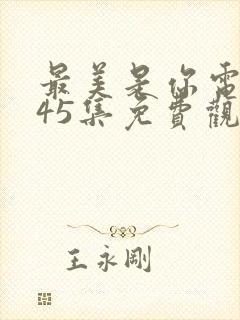 最美是你電
45集免費觀
王永剛